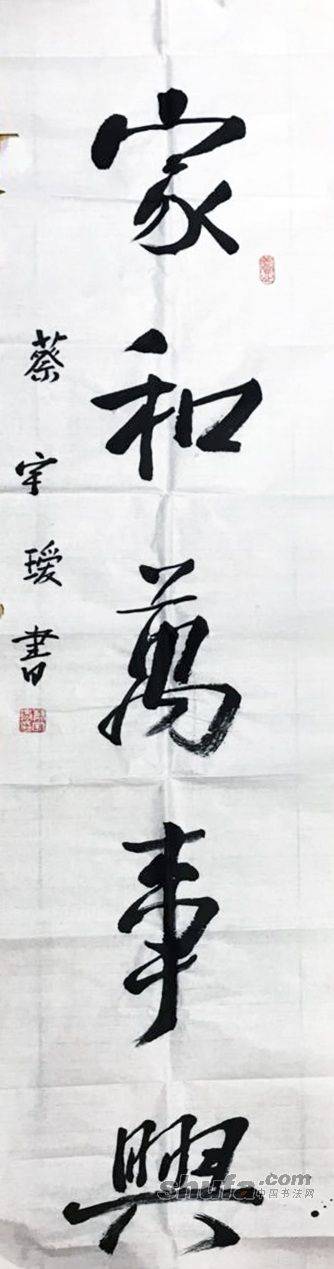 家和萬事興
蔡宇瑷書
shufa.com
中国书法网